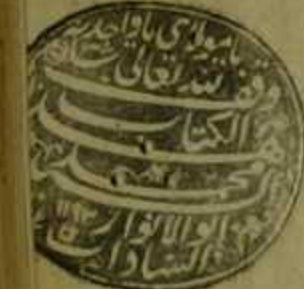 يا مولاي يا واحد
وقف لله تعالى
الكتاب
هذا
محمد
ابو الانوار
السادات